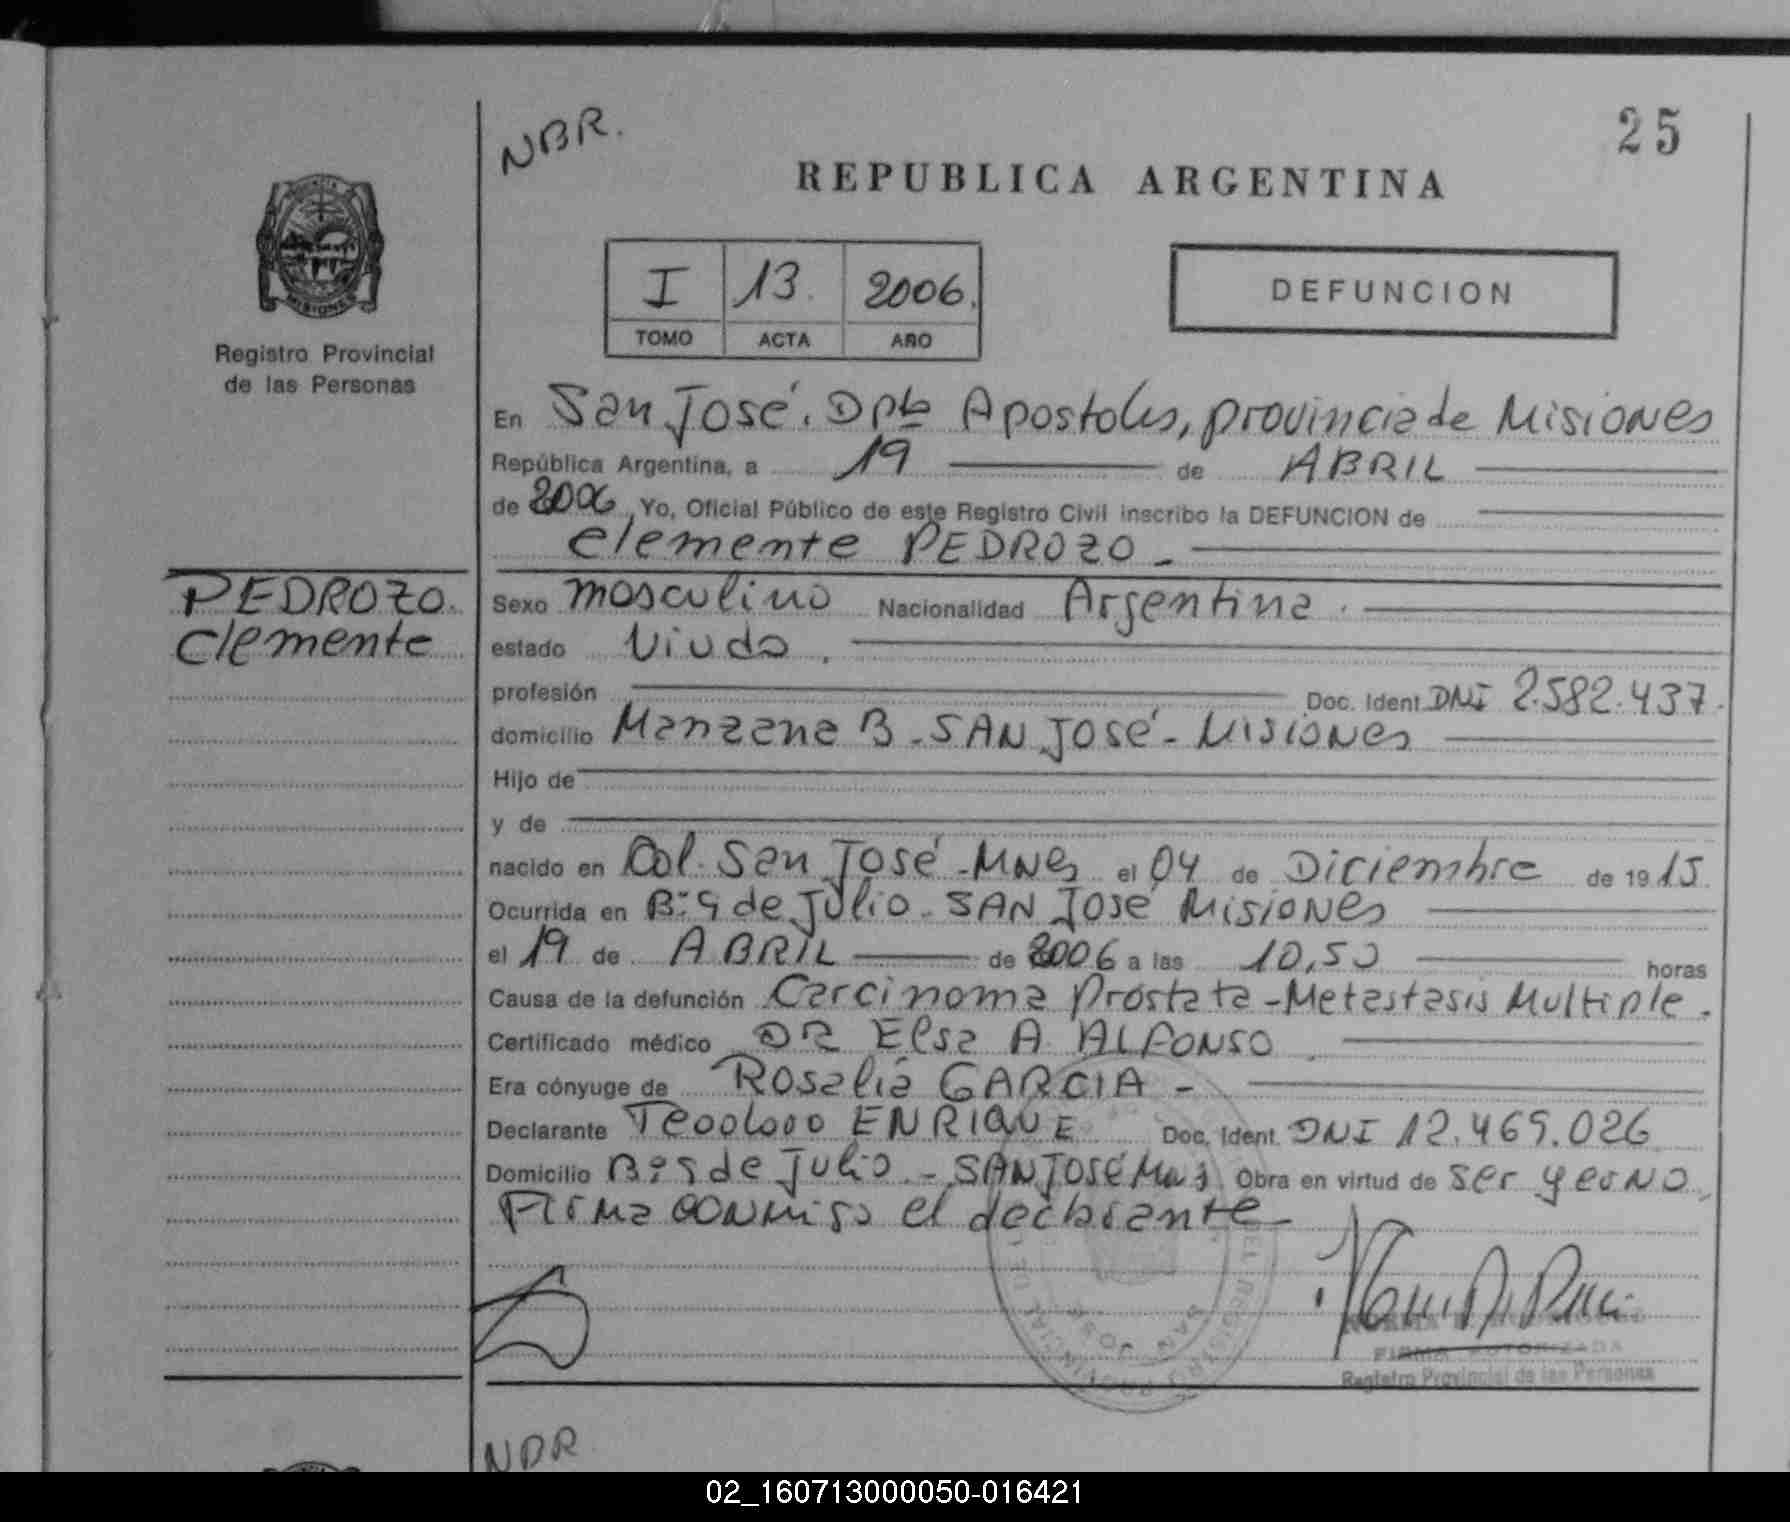 NBR.
25
REPUBLICA ARGENTINA
MISIONES
Registro Provincial
de las Personas
I 13. 2006.
TOMO ACTA AÑO
DEFUNCION
En San José. Dpto Apostoles, provincia de Misiones
República Argentina, a 19 de ABRIL
de 2006, Yo, Oficial Público de este Registro Civil inscribo la DEFUNCION de
Clemente PEDROZO -
PEDROZO.
Clemente
Sexo masculino Nacionalidad Argentina.
estado Viudo.
profesión Doc. Ident DNI 2.582.437.
domicilio Manzana B - SAN José - Misiones
Hijo de
y de
nacido en Col. San José - Mnes el 04 de Diciembre de 19 15.
Ocurrida en B: 9 de Julio - SAN José Misiones
el 19 de ABRIL de 2006 a las 10,50 horas
Causa de la defunción Carcinoma Prostata - Metastasis Multiple.
Certificado médico DR Elsa A. ALFONSO
Era cónyuge de Rosalia GARCIA -
Declarante Teodoro ENRIQUE Doc. Ident. DNI 12.469.026
Domicilio B: 9 de Julio - SAN José Mnes Obra en virtud de ser yerno,
Firma conmigo el declarante -
SAN JOSE
FIRMA AUTORIZADA
Registro Provincial de las Personas
NBR
02_160713000050-016421